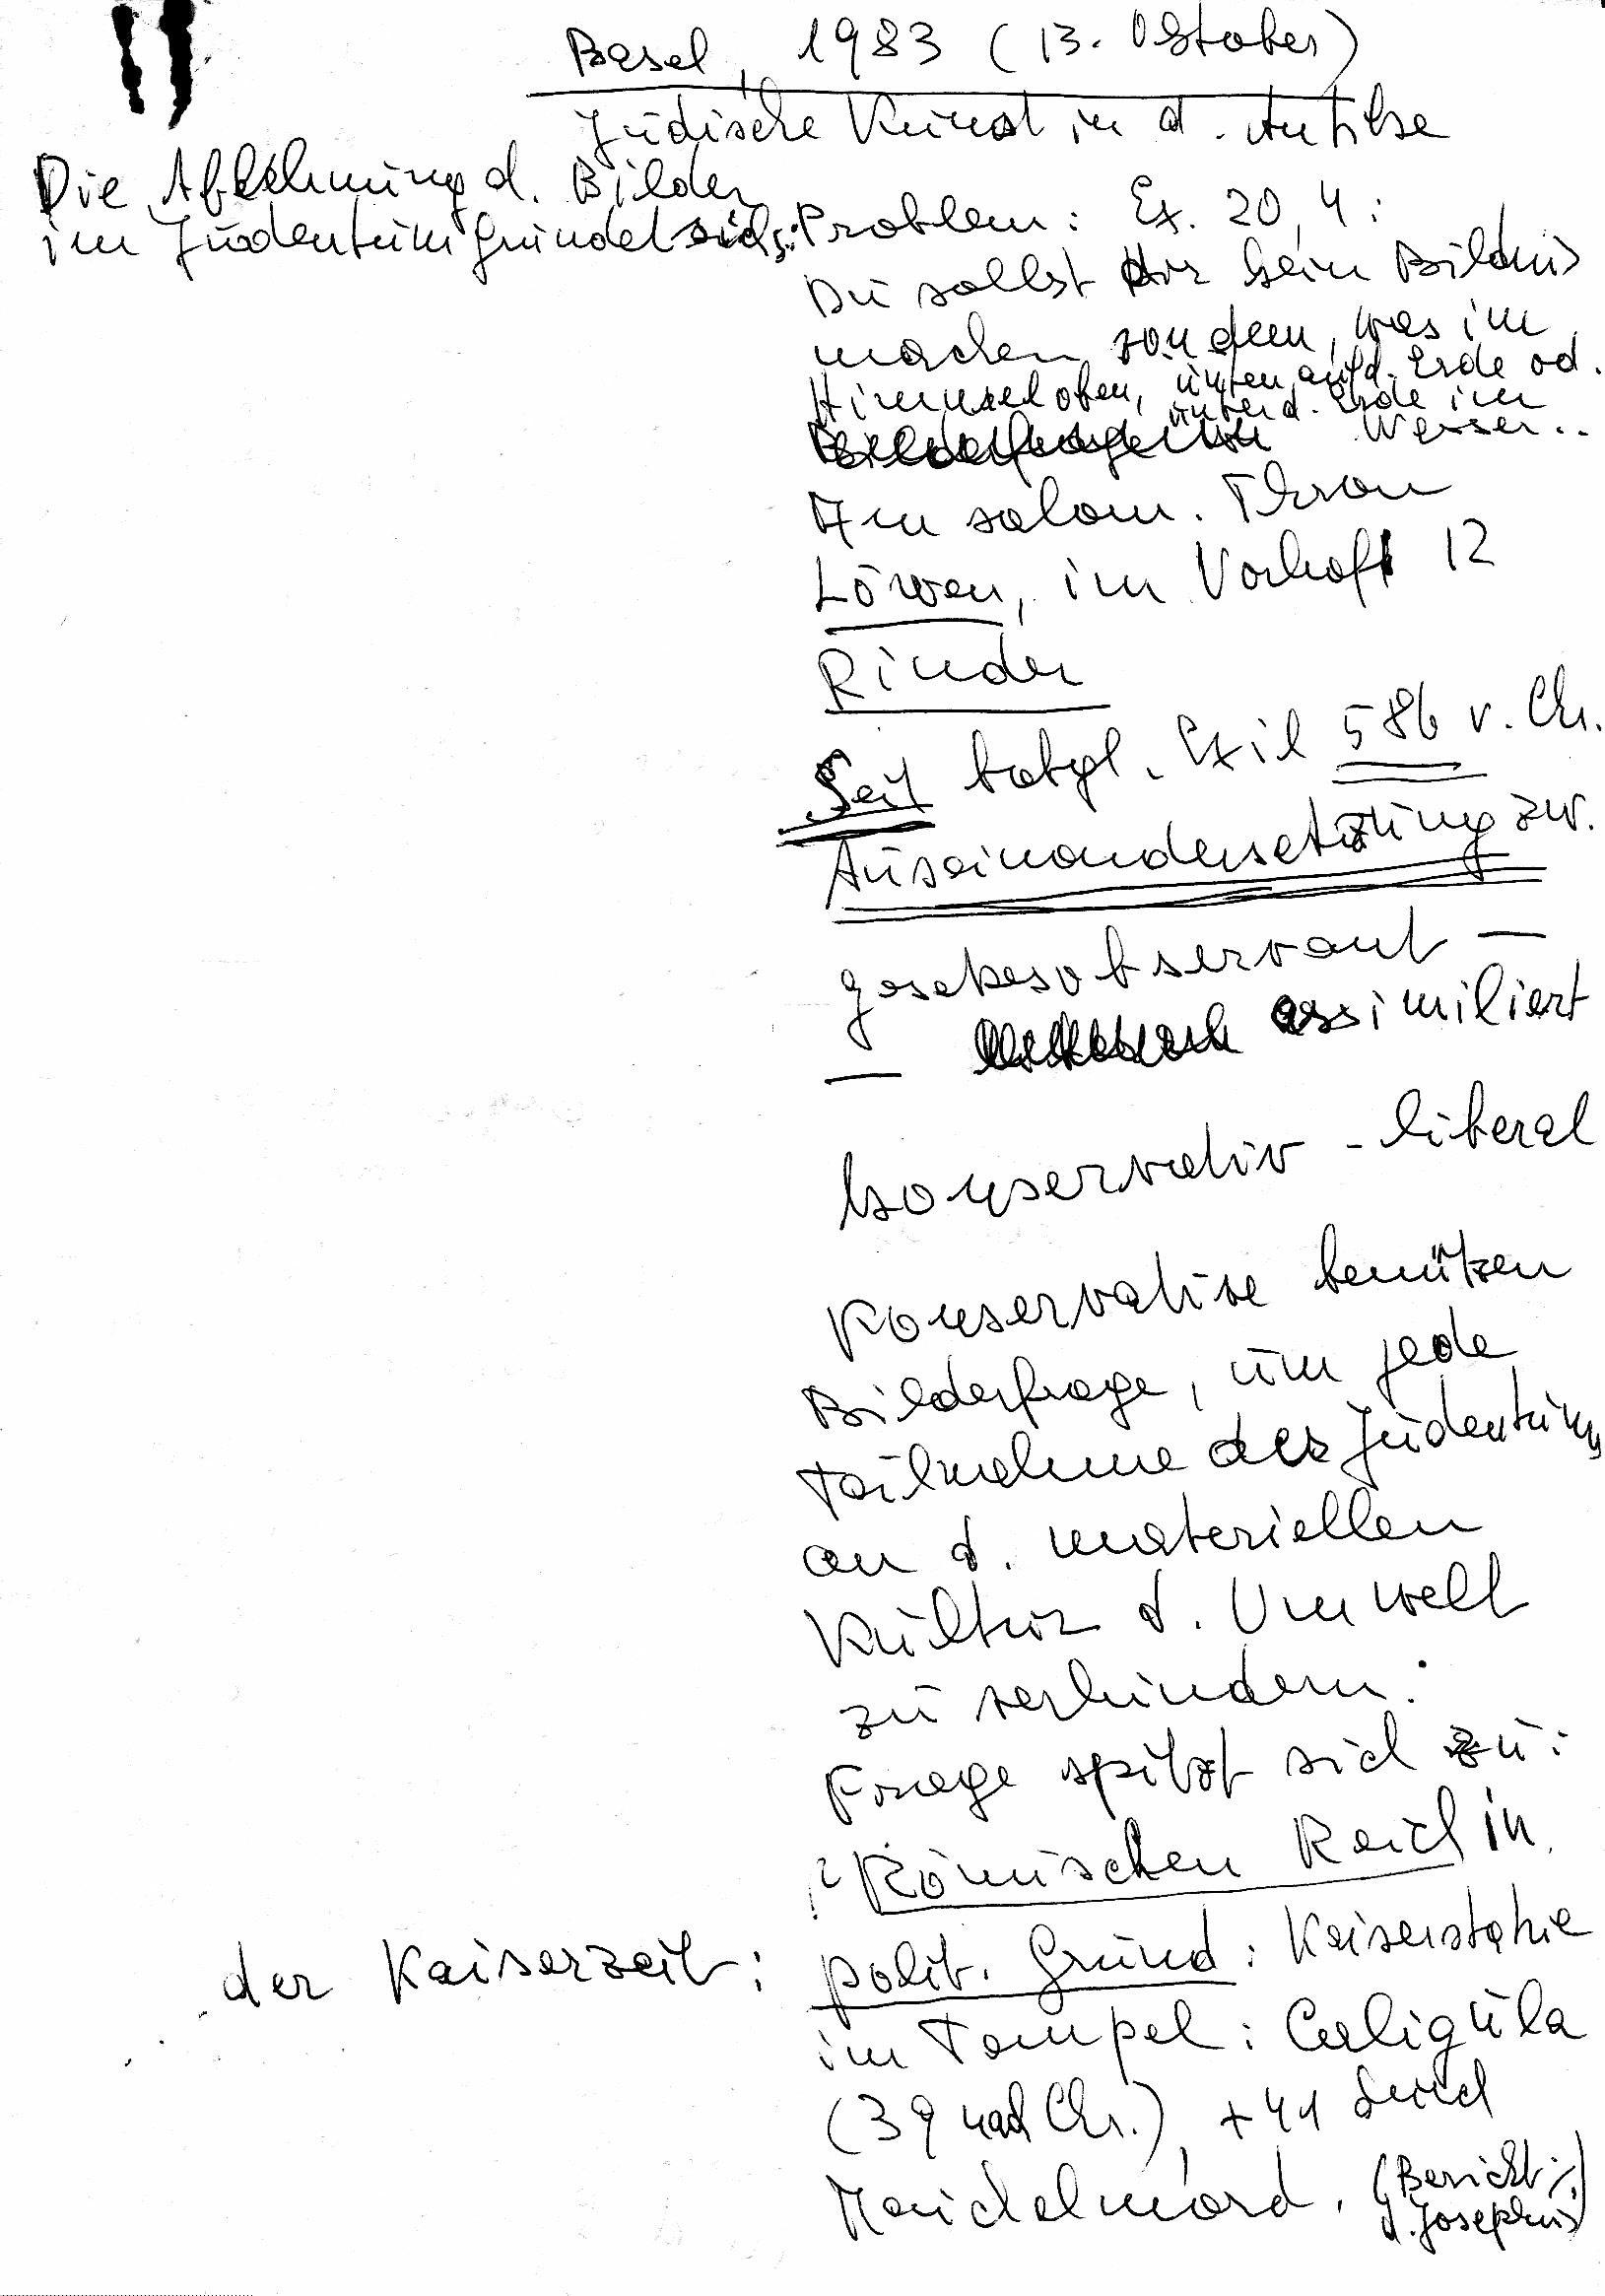 Basel, 1983 (13. Oktober)
Jüdische Kunst in d. Antike
Die Ablehnung d. Bilder
im Judentum gründet sich:
Problem: Ex. 20,4:
Du sollst dir kein Bildnis
machen von dem, was im
Himmel oben, unten auf d. Erde od.
unter d. Erde im
Wasser..
Am salom. Thron
Löwen, im Vorhof 12
Rinder
Seit babyl. Exil 586 v. Chr.
Auseinandersetzung zw.
gesetzesobservant –
– assimiliert
konservativ - liberal
Konservative benützen
Bilderfrage, um jede
Teilnahme des Judentums
an d. materiellen
Kultur d. Umwelt
zu verhindern.
Frage spitzt sich zu:
Römischen Reich in
der Kaiserzeit:
polit. Grund: Kaiserstatue
im Tempel: Caligula
(39 nach Chr.), +41 durch
Meuchelmord. (Bericht
d. Josephus)